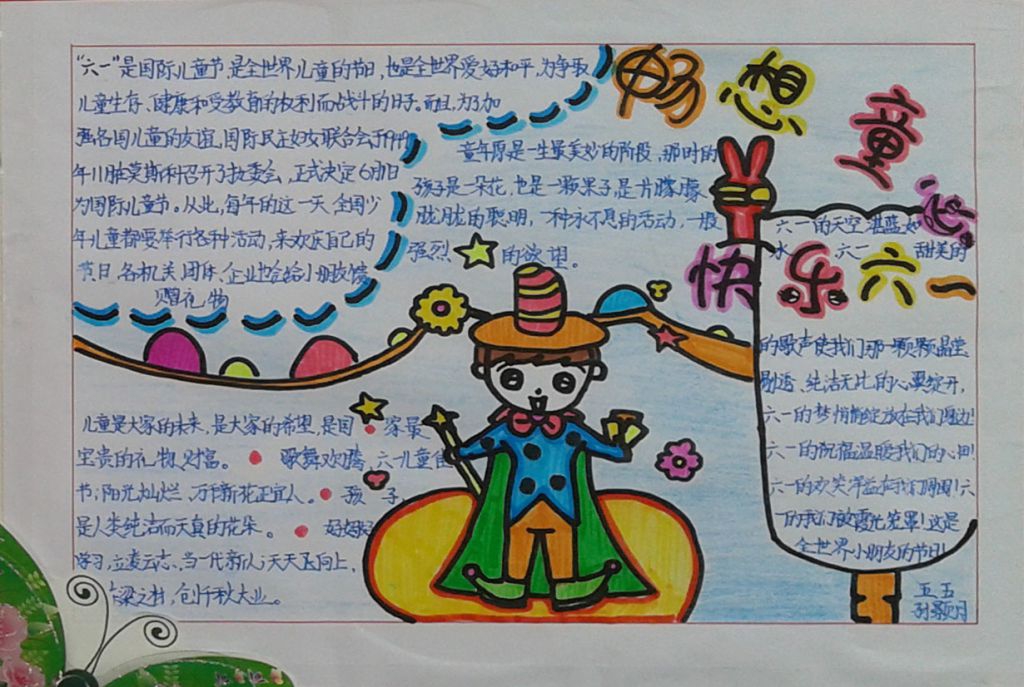 畅想童心
快乐六一
“六一”是国际儿童节,是全世界儿童的节日,也是全世界爱好和平,为争取
儿童生存、健康和受教育的权利而战斗的日子。而且,为了加
强各国儿童的友谊,国际民主妇女联合会于1949
年11月在莫斯科召开了执委会,正式决定6月1日
为国际儿童节。从此,每年的这一天,全国少
年儿童都要举行各种活动,来欢庆自己的
节日,各机关、团体、企业也会给小朋友馈
赠礼物
童年原是一生最美妙的阶段,那时的
孩子是一朵花,也是一颗果子,是一片朦朦
胧胧的聪明,一种永不息的活动,一股
强烈的欲望。
儿童是大家的未来,是大家的希望,是国家最
宝贵的礼物财富。歌舞欢腾,六一儿童佳
节;阳光灿烂,万千新花正宜人。孩子
是人类纯洁而天真的花朵。好好
学习,立凌云志、当一代新人;天天向上,
梁之材,创千秋大业。
六一的天空湛蓝如
水,六一甜美的
的歌声使我们那一颗颗晶莹
剔透、纯洁无比的心翼绽开,
六一的梦悄悄绽放在我们身边!
六一的祝福温暖我们的心田!
六一的欢笑洋溢在我们周围!六
一的我们被霞光笼罩!这是
全世界小朋友的节日!
五五